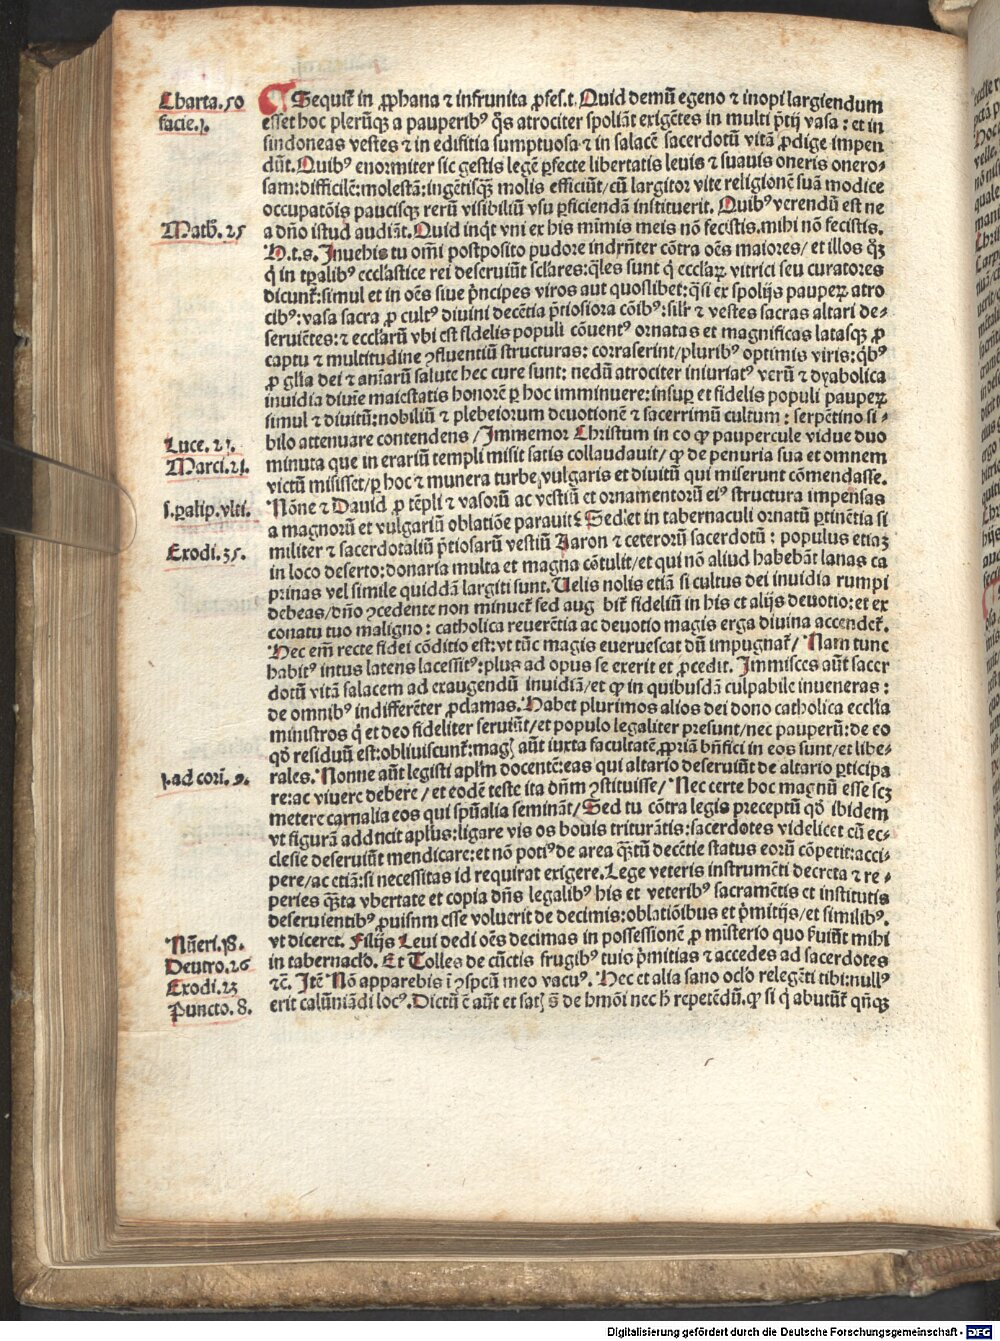 Charta.50
facie.j.
¶ Sequit᷑ in ꝓphana ⁊ infrunita ꝓfes.t. Quid demū egeno ⁊ inopi largiendum
esset hoc plerūqꝫ a pauperibꝰ q̄s atrociter spoliāt exigētes in multi p̄tij vasa : et in
sindoneas vestes ⁊ in edifitia sumptuosa ⁊ in salacē sacerdotū vitā ꝓdige impen
dūt. Quibꝰ enormiter sic gestis legē ꝑfecte libertatis leuis ⁊ suauis oneris onero⸗
sam:difficilē:molestā:ingētisqꝫ molis efficiūt/cū largitor vite religionē suā modice
occupatōis paucisqꝫ rerū visibiliū vsu ꝑficiendā instituerit. Quibꝰ verendū est ne
Math. 25
a dn̄o istud audiāt. Quid inqt vni ex his mimis meis nō fecistis.mihi nō fecistis.
D.t.s. Inuehis tu om̄i postposito pudore indrn̄ter cōtra oēs maiores/ et illos q̄ꝫ
q̇ in tꝑalibꝰ eccl'astice rei deseruiūt sclares:q̄les sunt q̇ eccl'aꝝ vitrici seu curatores
dicunt᷑:simul et in oēs siue p̄ncipes viros aut quoslibet:q̄si ex spolijs paupeꝝ atro
cibꝰ:vasa sacra ꝓ cultꝰ diuini decētia p̄tiosiora cōibꝰ:silr ⁊ vestes sacras altari de⸗
seruiētes:⁊ eccl'arū vbi est fidelis populi cōuentꝰ ornatas et magnificas latasqꝫ ꝓ
captu ⁊ multitudine ꝯfluentiū structuras: corraserint/pluribꝰ optimis viris:q̇bꝰ
ꝓ gl'ia dei ⁊ aniarū salute hec cure sunt: nedū atrociter iniuriatꝰ verū ⁊ dyabolica
inuidia diuine maiestatis honorē ꝑ hoc imminuere:insuꝑ et fidelis populi paupeꝝ
simul ⁊ diuitū:nobiliū ⁊ plebeiorum deuotionē ⁊ sacerrimū cultum : serpētino si⸗
Luce. 21.
bilo attenuare contendens /Immemor Christum in eo ꝙ paupercule vidue duo
Marci.21.
minuta que in erariū templi misit satis collaudauit/ ꝙ de penuria sua et omnem
victū misisset/ꝑ hoc ⁊ munera turbe vulgaris et diuitū qui miserunt cōmendasse.
j.ꝑalip.vlti.
Nōne ⁊ Dauid ꝓ tēpli ⁊ vasorū ac vestiū et ornamentorū eiꝰ structura impensas
a magnorū et vulgariū oblatiōe parauit: Sed et in tabernaculi ornatū ꝑtinētia si
Exodi.35.
militer ⁊ sacerdotaliū p̄tiosarū vestiū Aaron ⁊ ceterorū sacerdotū : populus etiaꝫ
in loco deserto:donaria multa et magna cōtulit/et qui nō aliud habebāt lanas ca
prinas vel simile quiddā largiti sunt. Uelis nolis etiā si cultus dei inuidia rumpi
debeas/dn̄o ꝯcedente non minuet᷑ sed aug bit᷑ fideliū in his et alijs deuotio:et ex
conatu tuo maligno : catholica reuerētia ac deuotio magis erga diuina accendet᷑.
Hec em̄ recte fidei cōditio est:vt tūc magis everuescat dū impugnat᷑/ Nam tunc
habitꝰ intus latens lacessitꝰ:plus ad opus se exerit et ꝓcedit. Immisces aūt sacer
dotū vitā salacem ad exaugendū inuidiā/et ꝙ in quibusdā culpabile inueneras :
de omnibꝰ indifferēter ꝓclamas. Habet plurimos alios dei dono catholica eccl'ia
ministros q̇ et deo fideliter seruiūt/et populo legaliter presunt/nec pauperū:de eo
qd̄ residuū est:obliuiscunt᷑:mag aūt iuxta facultatē ꝓpriā bn̄fici in eos sunt/et libe⸗
j.ad cori. 9.
rales. Nonne aūt legisti apl'm docentē:eas qui altario deseruiūt de altario ꝑticipa
re:ac viuere debere / et eodē teste ita dn̄m ꝯstituisse/ Nec certe hoc magnū esse scꝫ
metere carnalia eos qui sp̄ualia semināt/ Sed tu cōtra legis preceptū qd̄ ibidem
vt figurā adducit apl'us:ligare vis os bouis triturātis:sacerdotes videlicet cū ec⸗
clesie deseruiūt mendicare:et nō potiꝰ de area q̄ꝫtū decētie status eorū cōpetit:acci⸗
pere/ac etiā:si necessitas id requirat exigere. Lege veteris instrumēti decreta ⁊ re⸗
peries q̄ꝫta vbertate et copia dn̄s legalibꝰ his et veteribꝰ sacramētis et institutis
deseruientibꝰ ꝓuisum esse voluerit de decimis:oblatiōibus et p̄mitijs/et similibꝰ.
Nūeri.18.
vt diceret. Filijs Leui dedi oēs decimas in possessionē ꝓ misterio quo s̓uiūt mihi
Deutro.26
in tabernacl'o. Et Tolles de cūctis frugibꝰ tuis p̄mitias ⁊ accedes ad sacerdotes
Exodi.23
⁊c̄. Itē Nō apparebis ī ꝯspcū meo vacuꝰ. Hec et alia sano ocl'o relegēti tibi:nullꝰ
Puncto. 8.
erit calūniādi locꝰ. Dictū ē aūt et sat s̄ de hmōi nec h̄ repetēdū. ꝙ si q̇ abutūt᷑ qn̄qꝫ
Digitalisierung gefördert durch die Deutsche Forschungsgemeinschaft - DFG